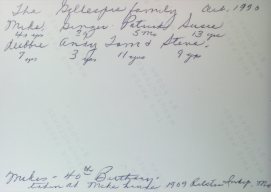 The Gillespie family Oct. 1990
Mike, Ginger, Patrick, Susie
40 yrs 39 5 Mo 13 yrs
Debbie Andy Tom & Steve.
7 yrs 3 yrs 11 yrs 9 yrs
Mike's - 40th Birthday.
Taken at Mike 1909